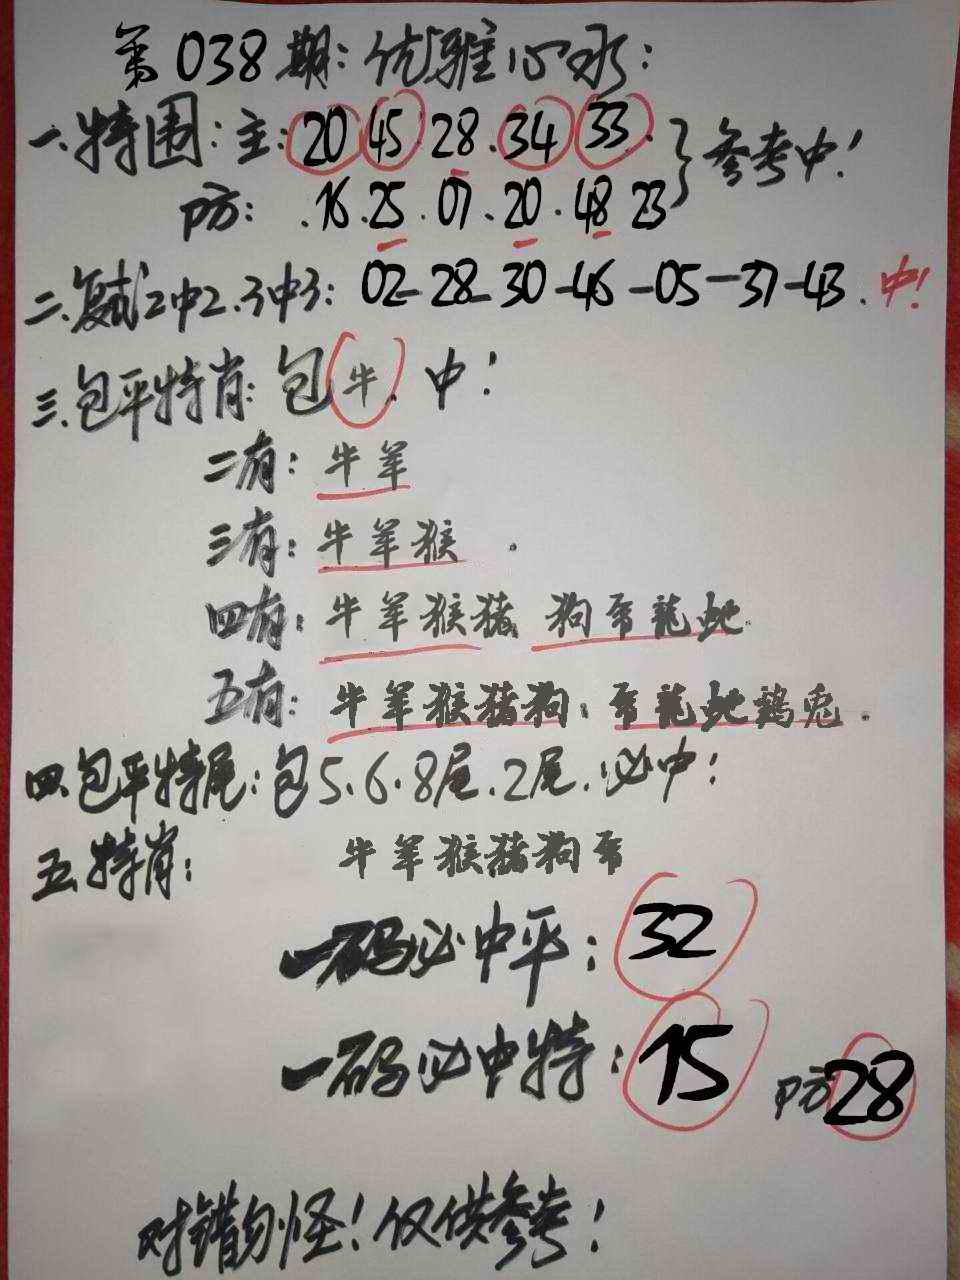 第038期：优雅心水：
一.特围：主：20 45 28.34 33.
防：.16.25.07.20.48 23 } 参考中！
二、复式2中2.3中3：02-28-30-46-05-37-43.中！
三.包平特肖：包牛.中！
二有：牛羊
三有：牛羊猴.
四有：牛羊猴猪 狗 龍蛇
五有：牛羊猴猪狗. 龍蛇鷄兔.
四.包平特尾：包5.6.8尾.2尾.必中！
五.特肖：牛羊猴猪狗
一码必中平：32
一码必中特：15 防28
对错勿怪！仅供参考！